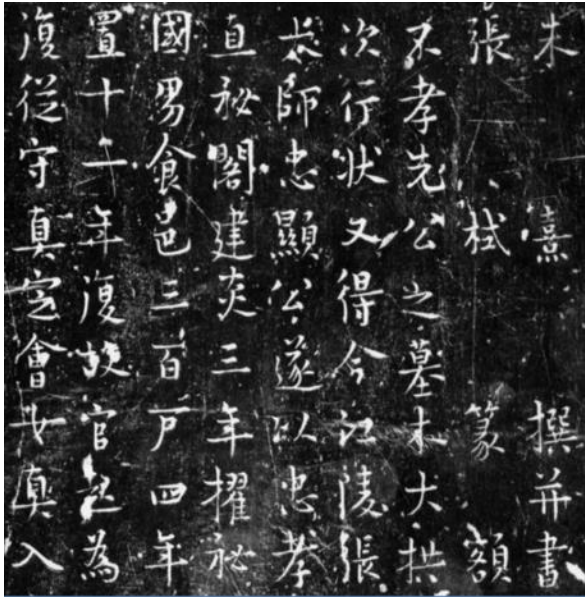 朱熹撰并書
張栻篆額
不孝先公之墓木大拱
次行狀又得今江陵張
太師忠顯公遂以忠孝
直祕閣建炎三年擢祕
國男食邑三百戶四年
置十一年復故官起為
復從守真定會女真入